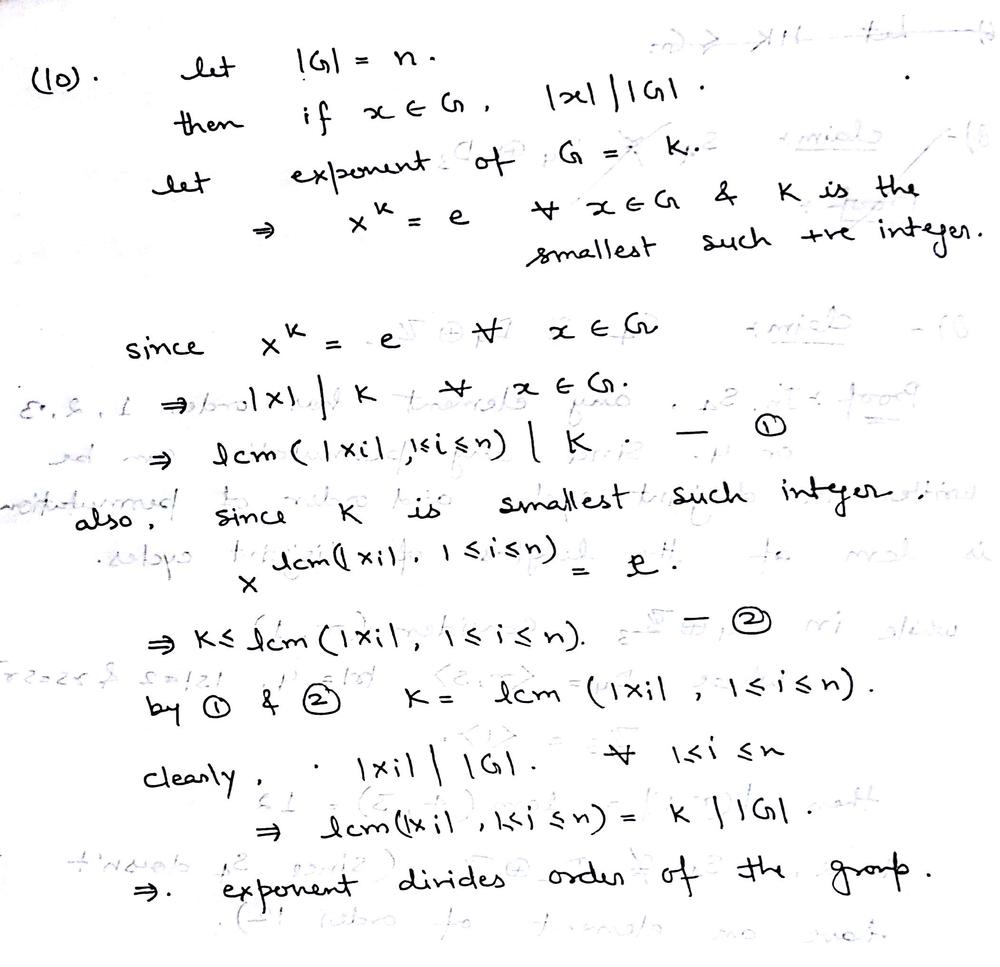 (10). let |G| = n.
then if x ∈ G, |x| | |G|.
let exponent of G = k.
⇒ x^k = e ∀ x ∈ G & K is the
smallest such +ve integer.
since x^k = e ∀ x ∈ G
⇒ |x| | k ∀ x ∈ G.
⇒ lcm (|xi|, 1≤i≤n) | K. — ①
also, since K is smallest such integer.
x^lcm(|xi|, 1≤i≤n) = e.
⇒ K≤ lcm (|xi|, 1≤i≤n). — ②
by ① & ② K = lcm (|xi|, 1≤i≤n).
clearly, |xi| | |G|. ∀ 1≤i≤n
⇒ lcm(|xi|, 1≤i≤n) = K | |G|.
⇒. exponent divides order of the group.